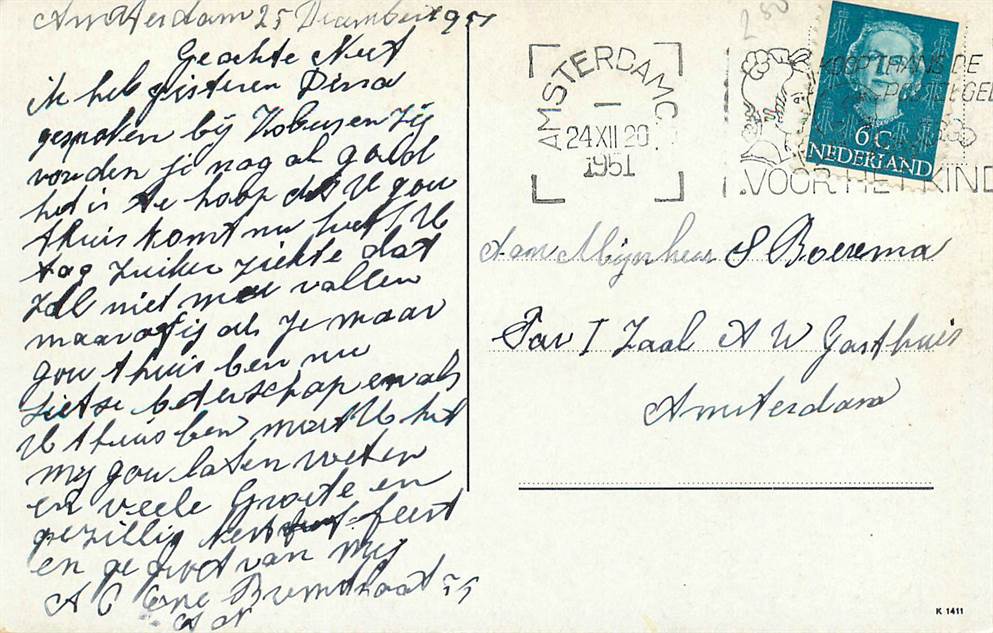 Amsterdam 25 December 1951
Geachte Neet
ik heb gisteren Dirra
gesproken bij Kobus en Zij
vonden je nog al goed
het is te hoop dat U gou
thuis komt nu heeft U
tog zuiker ziekte dat
zal niet mee vallen
maar als je maar
gou thuis ben nu
Sietse beterschap en als
U thuis ben moet U het
mij gou laten weten
en veele Groete en
gezillig kerst feest
en ge groet van mij
A C Bremstraat 55
2 50
AMSTERDAM C
I
24 XII 20
1951
KOOP THANS DE
POSTZEGEL
VOOR HET KIND
6 C
NEDERLAND
Aan Mijnheer S Boerema
Pav I Zaal A W Gasthuis
Amsterdam
K 1411